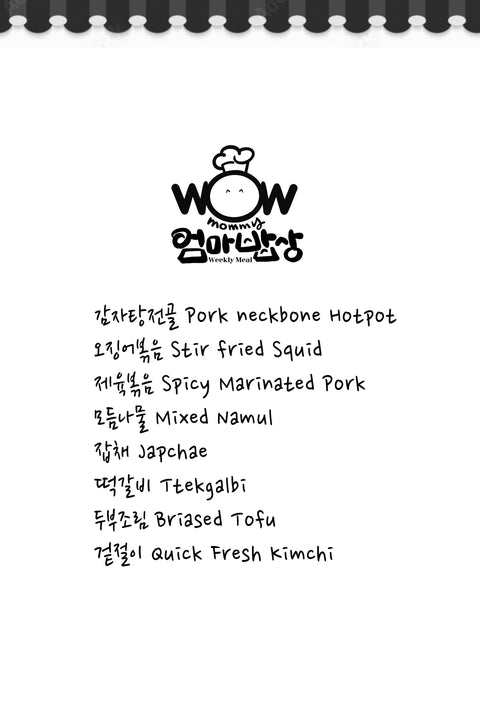 WOW
mommy
엄마밥상
Weekly Meal
감자탕전골 Pork neckbone Hotpot
오징어볶음 Stir fried Squid
제육볶음 Spicy Marinated Pork
모듬나물 Mixed Namul
잡채 Japchae
떡갈비 Ttekgalbi
두부조림 Briased Tofu
겉절이 Quick Fresh Kimchi